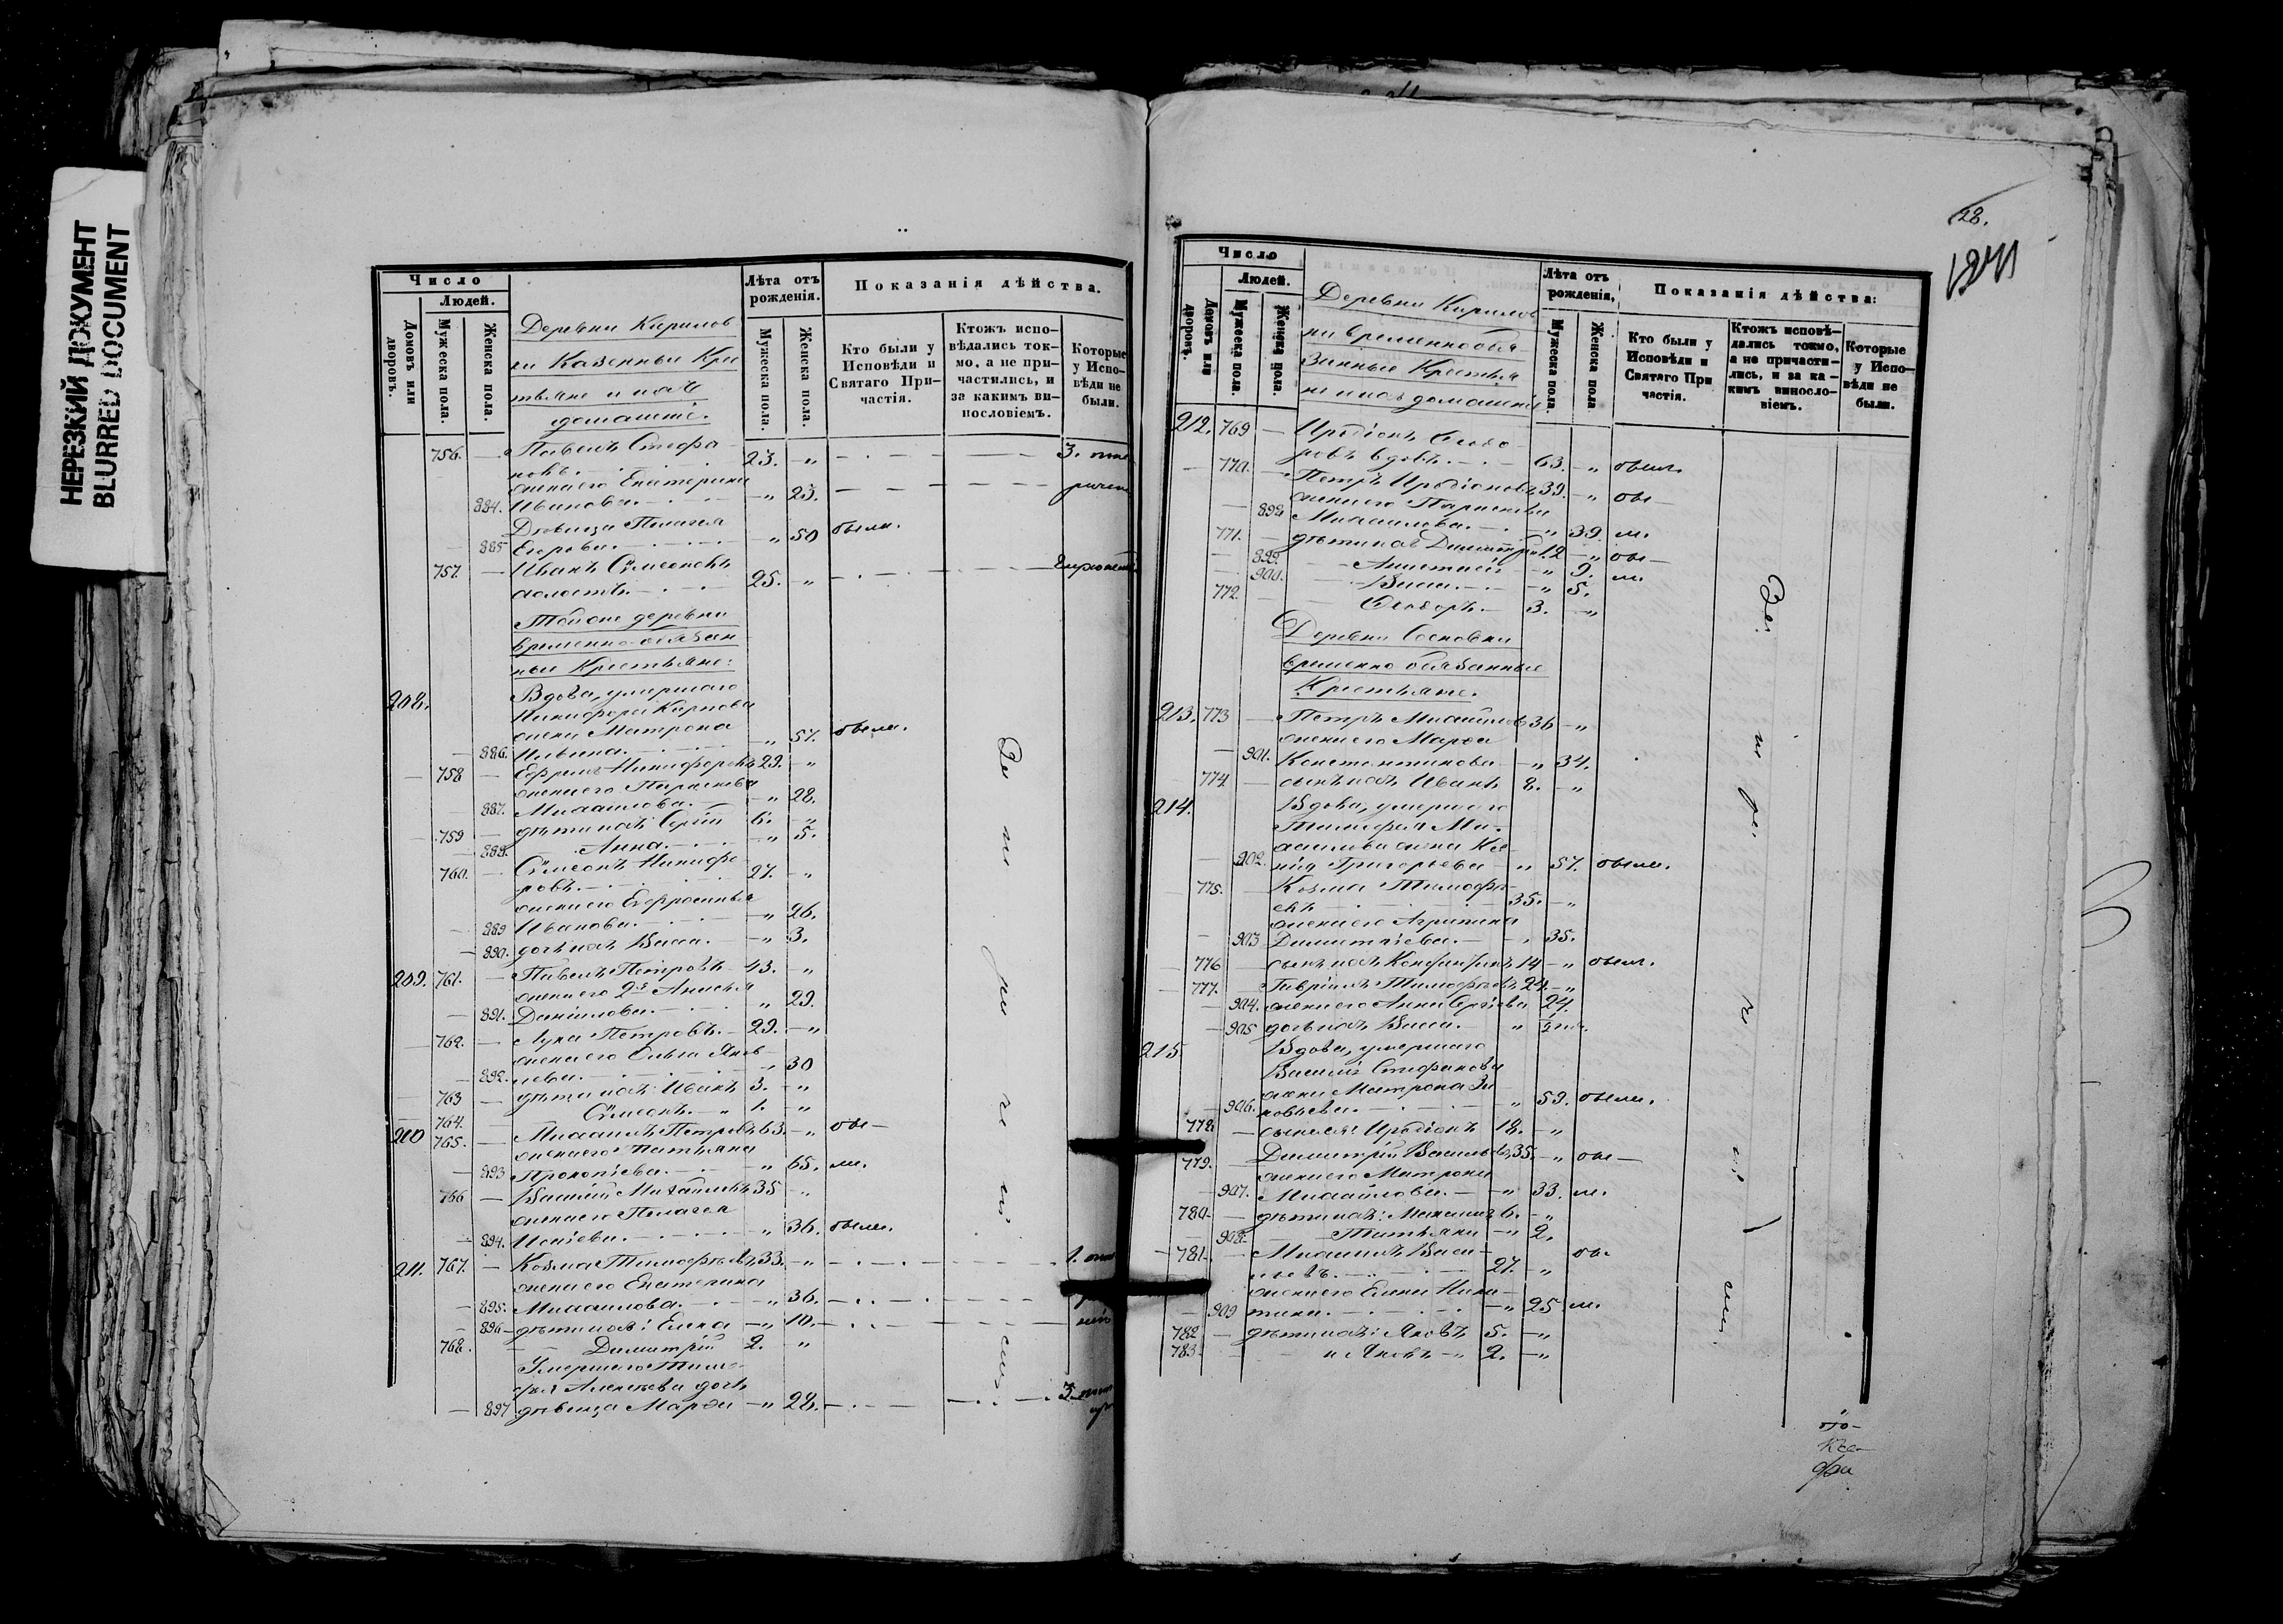 НЕРЕЗКИЙ ДОКУМЕНТ
BLURRED DOCUMENT
Число
Людей.
Домовъ или дворовъ.
Мужеска пола.
Женска пола.
Деревни Кирилов
ки Казенные Кре
стьяне и ихъ
домашніе.
Лѣта отъ рожденія.
Мужеска пола.
Женска пола.
Показанія дѣйства.
Кто были у Исповѣди и Святаго Причастія.
Ктожъ исповѣдались токмо, а не причастились, и за какимъ винословіемъ.
Которые у Исповѣди не были.
756. Павелъ Стефановъ 23. 3.
884. жена его Екатерина Иванова 23.
885 Дѣвица Пелагея Егорова 50 были.
757. Иванъ Сѵмеоновъ холостъ 25.
Той же деревни
временно-обязан
ные Крестьяне:
208. Вдова, умершаго
Никифора Карпова
жена Матрона
886. Ильина 57. были.
758 Ефремъ Никифоровъ 29.
жена его Параскева
887. Михаилова 28.
759 дѣти ихъ: Сергій 6.
888. Анна 5.
760. Сѵмеонъ Никифоровъ 27.
жена его Евфросинья
889 Иванова 26.
890. дочь ихъ Васса 3.
209. 761. Павелъ Петровъ 43.
жена его 2я Анисья
891. Даниилова 29.
762. Лука Петровъ 29.
жена его Ольга Яков
892. лева 30
763 дѣти ихъ: Иванъ 3.
764. Сѵмеонъ 1.
210 765. Михаилъ Петровъ 63. бы
жена его Татьяна
893 Прокопіева 65. ли.
766 Василій Михайловъ 35
жена его Пелагея
894. Исаіева 36. были.
211. 767. Козма Тимофѣевъ 33. 1.
жена его Екатерина
895. Михаилова 36.
896 дѣти ихъ: Елена 10.
768. Димитрій 2.
Умершаго Тимо
фея Алексѣева дочь
897 дѣвица Марфа 28. 3.
За не ра чи ті емъ
28.
Число
Людей.
Домовъ или дворовъ.
Мужеска пола.
Женска пола.
Деревни Кирилов
ки временнообя
занные Крестья
не и ихъ домашніе
Лѣта отъ рожденія,
Мужеска пола.
Женска пола
Показанія дѣйства:
Кто были у Исповѣди и Святаго Причастія.
Ктожъ исповѣдались токмо, а не причастились, и за какимъ винословіемъ.
Которые у Исповѣди не были.
212. 769 Иродіонъ Ѳеодо
ровъ вдовъ 63. были.
770. Петръ Иродіоновъ 39. бы
жена его Параскева
898 Михаилова 39. ли.
771. дѣти ихъ: Димитрій 12 бы
899. 9. ли.
900. Васса 5.
772. Ѳеодоръ 3.
Деревни Сосновки
временно обязанные
Крестьяне.
213. 773 Петръ Михайловъ 36
жена его Марѳа
901. Константинова 34.
774 сынъ ихъ Иванъ 8.
214. Вдова, умершаго
Тимофея Ми
хаилова жена Ксе
902. нія Григорьева 57. были.
775. Козма Тимофе
евъ 35.
жена его Агрипина
903 Димитріева 35.
776 сынъ ихъ 14 были.
777. Гавріилъ Тимофѣевъ 24.
904. жена его Анна Сергіева 24.
905 дочь ихъ Васса
215. Вдова, умершаго
Василія Стефанова
жена Матрона Зи
906. новьева 59. были.
778. сынъ ея: Иродіонъ 18.
779. Димитрій Васильевъ 35. бы
жена его Матрона
907. Михайлова 33. ли.
780 дѣти ихъ: Максимъ 6.
908. Татьяна 2.
781. Михаилъ Васи
льевъ 27. бы
жена его Елена Ники
909 тина 25. ли.
782 дѣти ихъ: Яковъ 5.
783. и Яковъ 2.
За не ра чи ті емъ